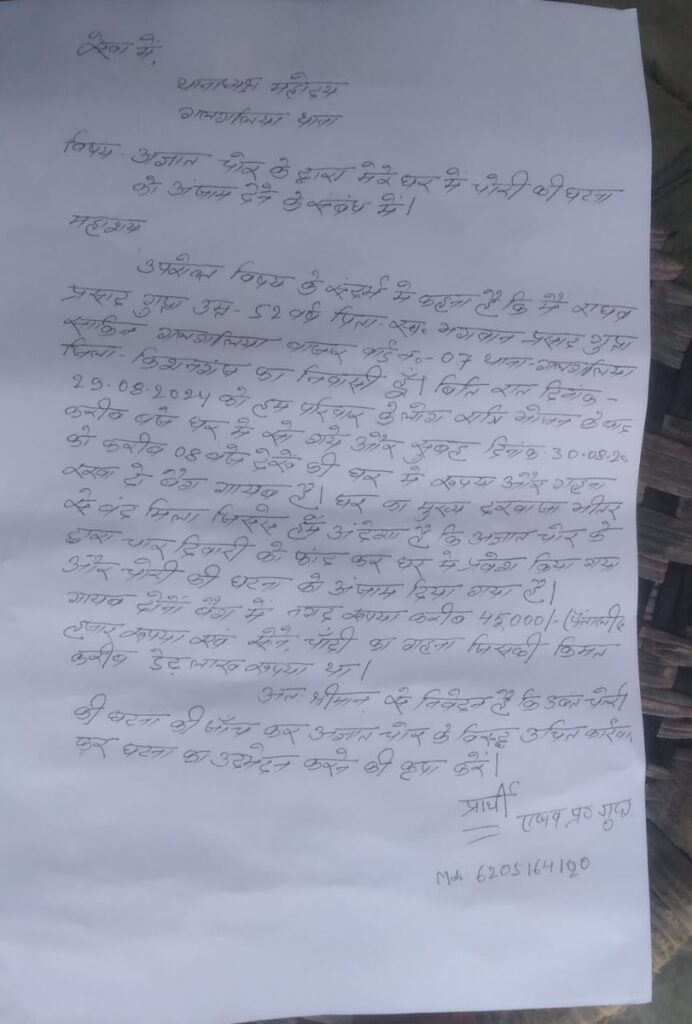 सेवा में,
थानाध्यक्ष महोदय
गलगलिया थाना
विषय- अज्ञात चोर के द्वारा मेरे घर में चोरी की घटना
को अंजाम देने के संबंध में।
महाशय
उपरोक्त विषय के संदर्भ में कहना है कि मैं राघव
प्रसाद गुप्ता उम्र- 52 वर्ष पिता- स्व० भगवान प्रसाद गुप्ता
साकिन गलगलिया बाजार वार्ड नं०-07 थाना-गलगलिया
जिला- किशनगंज का निवासी हूँ। बिति रात दिनांक-
29.08.2024 को हम परिवार के लोग रात्रि भोजन के बाद
करीब बजे घर में सो गये और सुबह दिनांक 30.08.20
को करीब 08 बजे देखें की घर में रूपया और गहना
रखा दो बैग गायब है। घर का मुख्य दरवाजा भीतर
से बंद मिला जिससे हमें अंदेशा है कि अज्ञात चोर के
द्वारा चार दिवारी को फांद कर घर में प्रवेश किया गया
और चोरी की घटना को अंजाम दिया गया है।
गायब दोनों बैग में नगद रूपया करीब 45,000/- (पैंतालीस
हजार रूपया एवं सोने, चाँदी का गहना जिसकी किमत
करीब डेढ़ लाख रूपया था।
अतः श्रीमान् से निवेदन है कि उक्त चोरी
की घटना की जाँच कर अज्ञात चोर के विरूद्ध उचित कार्रवा
कर घटना का उद्भेदन करने की कृपा करें।
प्रार्थी
राघव प्र० गुप्ता
Mob. 6205164120